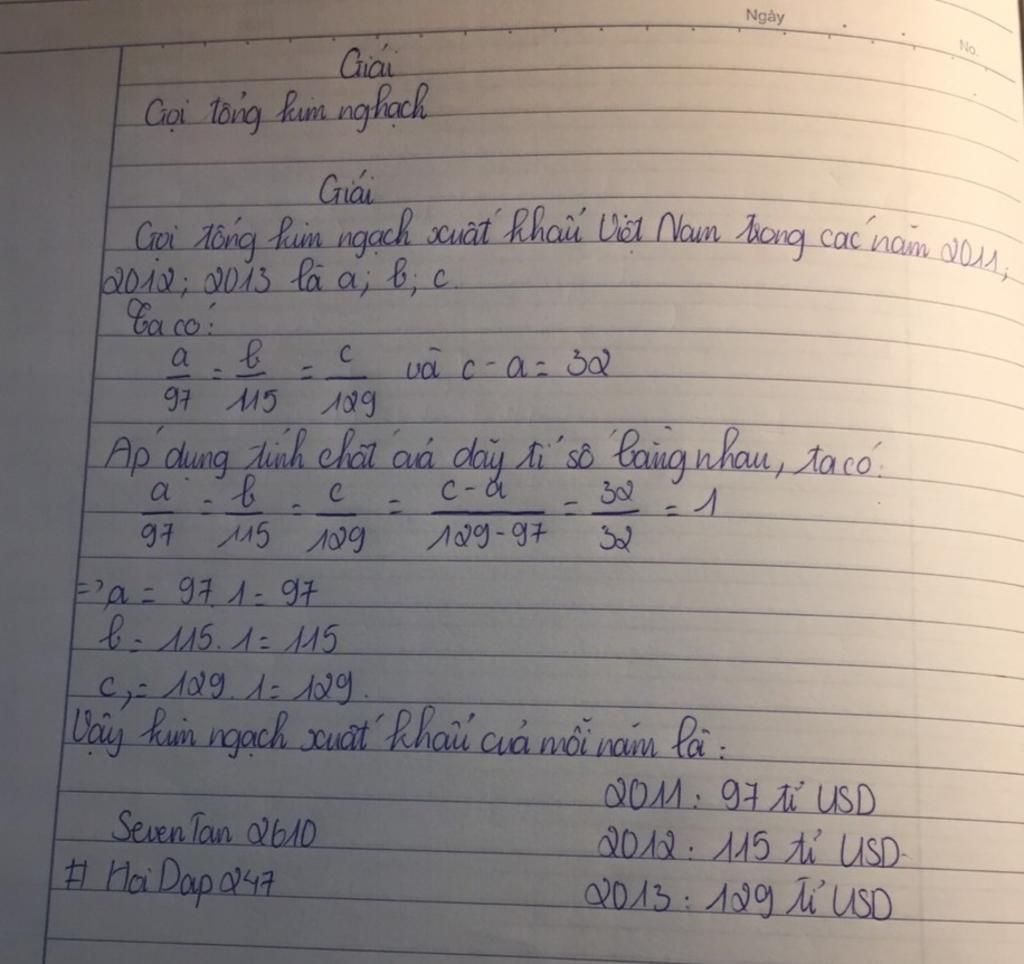 Ngày
No.
Giải
Gọi tổng kim nghạch
Giải
Gọi tổng kim ngạch xuất khẩu Việt Nam trong các năm 2011;
2012; 2013 là a; b; c.
Ta có:
a/97 = b/115 = c/129 và c - a = 32
Áp dụng tính chất của dãy tỉ số bằng nhau, ta có:
a/97 = b/115 = c/129 = (c - a)/(129 - 97) = 32/32 = 1
=> a = 97. 1 = 97
b = 115. 1 = 115
c = 129. 1 = 129.
Vậy kim ngạch xuất khẩu của mỗi năm là:
2011: 97 tỉ USD
2012: 115 tỉ USD
2013: 129 tỉ USD
SevenTan 2610
# HoiDap247